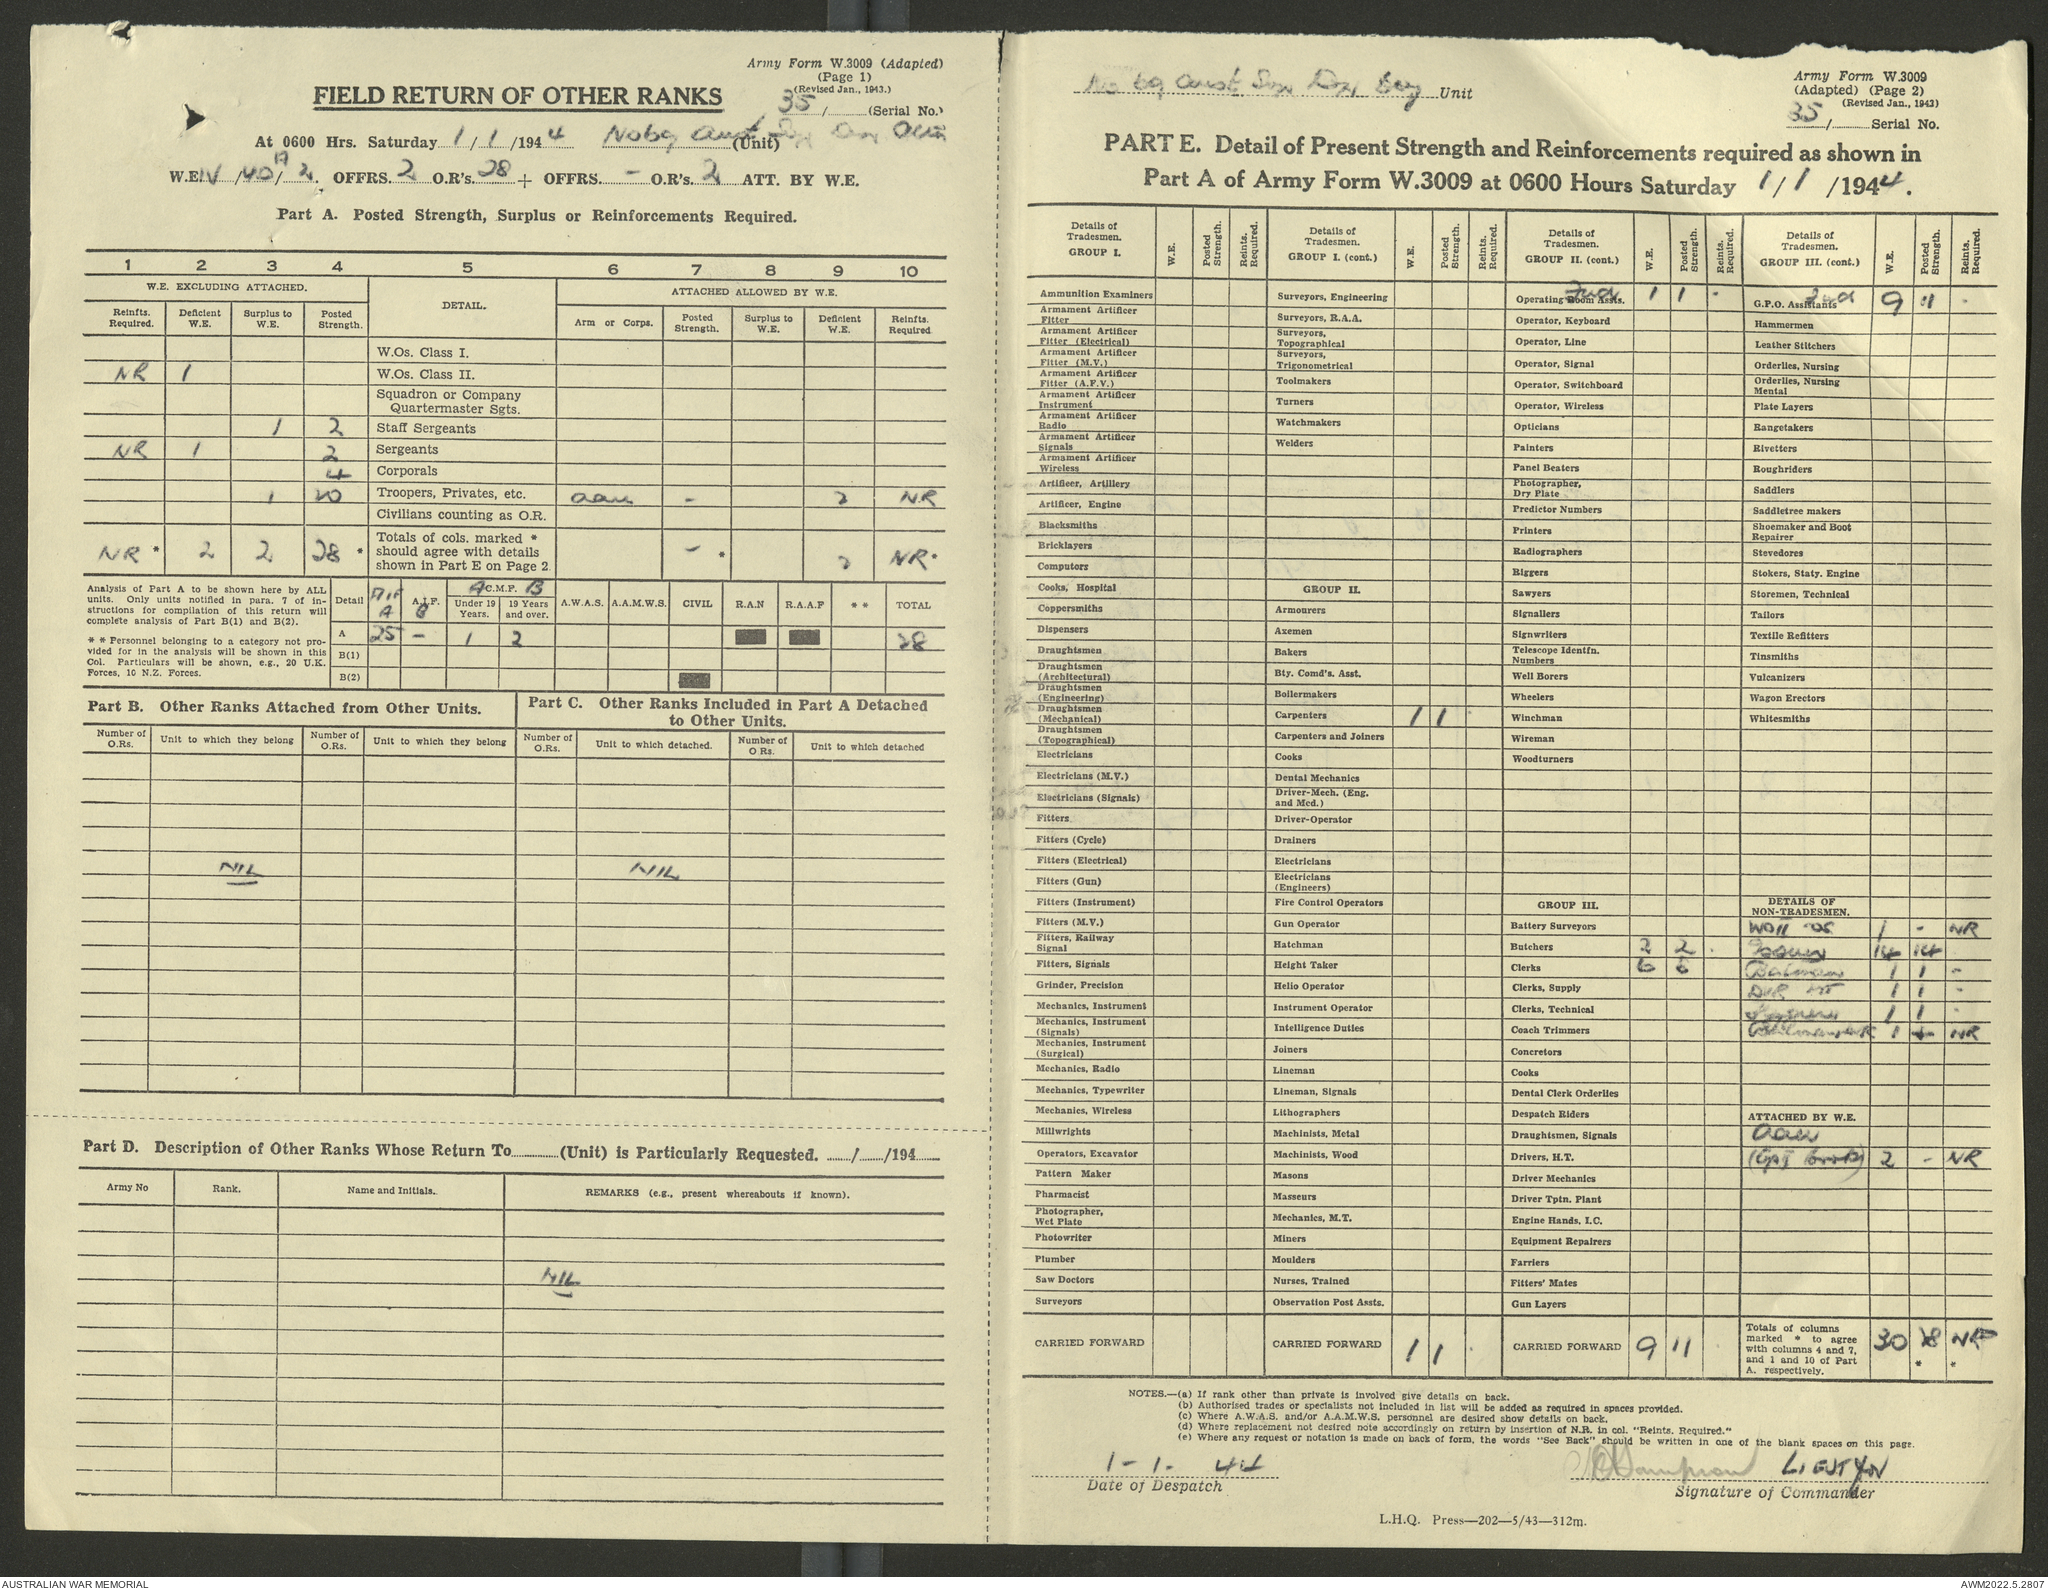 Army Form W.3009 (Adapted)
(Page 1)
(Revised Jan., 1943.)
FIELD RETURN OF OTHER RANKS
35 / (Serial No.)
At 0600 Hrs. Saturday 1 / 1 /1944 (Unit)
W.E. IV / 40 / 2. OFFRS. 2 O.R's. 28 + OFFRS. - O.R's. 2 ATT. BY W.E.
Part A. Posted Strength, Surplus or Reinforcements Required.
1 2 3 4 5 6 7 8 9 10
W.E. EXCLUDING ATTACHED. DETAIL. ATTACHED ALLOWED BY W.E.
Reinfts. Required. Deficient W.E. Surplus to W.E. Posted Strength. Arm or Corps. Posted Strength. Surplus to W.E. Deficient W.E. Reinfts. Required
W.Os. Class I.
NR 1 W.Os. Class II.
Squadron or Company Quartermaster Sgts.
1 2 Staff Sergeants
NR 1 2 Sergeants
4 Corporals
1 20 Troopers, Privates, etc. aau - 2 NR
Civilians counting as O.R.
NR * 2 2 28 * Totals of cols. marked * should agree with details shown in Part E on Page 2 - * 2 NR *
Analysis of Part A to be shown here by ALL
units. Only units notified in para. 7 of in-
structions for compilation of this return will
complete analysis of Part B(1) and B(2).
* * Personnel belonging to a category not pro-
vided for in the analysis will be shown in this
Col. Particulars will be shown, e.g., 20 U.K.
Forces, 10 N.Z. Forces.
Detail AIF A A.I.F. B A C.M.F. B Under 19 Years. 19 Years and over. A.W.A.S. A.A.M.W.S. CIVIL R.A.N R.A.A.F * * TOTAL
A 25 - 1 2 28
B(1)
B(2)
Part B. Other Ranks Attached from Other Units.
Number of O.Rs. Unit to which they belong Number of O.Rs. Unit to which they belong
NIL
Part C. Other Ranks Included in Part A Detached
to Other Units.
Number of O.Rs. Unit to which detached. Number of O Rs. Unit to which detached
NIL
Part D. Description of Other Ranks Whose Return To (Unit) is Particularly Requested. / /194
Army No Rank. Name and Initials. REMARKS (e.g., present whereabouts if known).
NIL
Unit
Army Form W.3009
(Adapted) (Page 2)
(Revised Jan., 1943)
35 / Serial No.
PART E. Detail of Present Strength and Reinforcements required as shown in
Part A of Army Form W.3009 at 0600 Hours Saturday 1 / 1 /1944.
Details of Tradesmen. GROUP I. W.E. Posted Strength. Reints. Required.
Ammunition Examiners
Armament Artificer Fitter
Armament Artificer Fitter (Electrical)
Armament Artificer Fitter (M.V.)
Armament Artificer Fitter (A.F.V.)
Armament Artificer Instrument
Armament Artificer Radio
Armament Artificer Signals
Armament Artificer Wireless
Artificer, Artillery
Artificer, Engine
Blacksmiths
Bricklayers
Computors
Cooks, Hospital
Coppersmiths
Dispensers
Draughtsmen
Draughtsmen (Architectural)
Draughtsmen (Engineering)
Draughtsmen (Mechanical)
Draughtsmen (Topographical)
Electricians
Electricians (M.V.)
Electricians (Signals)
Fitters
Fitters (Cycle)
Fitters (Electrical)
Fitters (Gun)
Fitters (Instrument)
Fitters (M.V.)
Fitters, Railway Signal
Fitters, Signals
Grinder, Precision
Mechanics, Instrument
Mechanics, Instrument (Signals)
Mechanics, Instrument (Surgical)
Mechanics, Radio
Mechanics, Typewriter
Mechanics, Wireless
Millwrights
Operators, Excavator
Pattern Maker
Pharmacist
Photographer, Wet Plate
Photowriter
Plumber
Saw Doctors
Surveyors
CARRIED FORWARD
Details of Tradesmen. GROUP I. (cont.) W.E. Posted Strength. Reints. Required.
Surveyors, Engineering
Surveyors, R.A.A.
Surveyors, Topographical
Surveyors, Trigonometrical
Toolmakers
Turners
Watchmakers
Welders
GROUP II.
Armourers
Axemen
Bakers
Bty. Comd's. Asst.
Boilermakers
Carpenters 1 1
Carpenters and Joiners
Cooks
Dental Mechanics
Driver-Mech. (Eng. and Med.)
Driver-Operator
Drainers
Electricians
Electricians (Engineers)
Fire Control Operators
Gun Operator
Hatchman
Height Taker
Helio Operator
Instrument Operator
Intelligence Duties
Joiners
Lineman
Lineman, Signals
Lithographers
Machinists, Metal
Machinists, Wood
Masons
Masseurs
Mechanics, M.T.
Miners
Moulders
Nurses, Trained
Observation Post Assts.
CARRIED FORWARD 1 1
Details of Tradesmen. GROUP II. (cont.) W.E. Posted Strength. Reints. Required.
Operating Room Assts. Fwd 1 1 -
Operator, Keyboard
Operator, Line
Operator, Signal
Operator, Switchboard
Operator, Wireless
Opticians
Painters
Panel Beaters
Photographer, Dry Plate
Predictor Numbers
Printers
Radiographers
Riggers
Sawyers
Signallers
Signwriters
Telescope Identfn. Numbers
Well Borers
Wheelers
Winchman
Wireman
Woodturners
GROUP III.
Battery Surveyors
Butchers 2 2
Clerks 6 6
Clerks, Supply
Clerks, Technical
Coach Trimmers
Concretors
Cooks
Dental Clerk Orderlies
Despatch Riders
Draughtsmen, Signals
Drivers, H.T.
Driver Mechanics
Driver Tptn. Plant
Engine Hands, I.C.
Equipment Repairers
Farriers
Fitters' Mates
Gun Layers
CARRIED FORWARD 9 11
Details of Tradesmen. GROUP III. (cont.) W.E. Posted Strength. Reints. Required.
G.P.O. Assistants Fwd 9 11 -
Hammermen
Leather Stitchers
Orderlies, Nursing
Orderlies, Nursing Mental
Plate Layers
Rangetakers
Rivetters
Roughriders
Saddlers
Saddletree makers
Shoemaker and Boot Repairer
Stevedores
Stokers, Staty. Engine
Storemen, Technical
Tailors
Textile Refitters
Tinsmiths
Vulcanizers
Wagon Erectors
Whitesmiths
DETAILS OF NON-TRADESMEN.
WOII 1 - NR
Issuers 14 14
Batman 1 1 -
1 1 -
1 1 -
1 NR
ATTACHED BY W.E.
aau
2 - NR
Totals of columns marked * to agree with columns 4 and 7, and 1 and 10 of Part A. respectively. 30 28 * NR *
NOTES.—(a) If rank other than private is involved give details on back.
(b) Authorised trades or specialists not included in list will be added as required in spaces provided.
(c) Where A.W.A.S. and/or A.A.M.W.S. personnel are desired show details on back.
(d) Where replacement not desired note accordingly on return by insertion of N.R. in col. "Reints. Required."
(e) Where any request or notation is made on back of form, the words "See Back" should be written in one of the blank spaces on this page.
1 - 1 - 44
Date of Despatch
LIEUT
Signature of Commander
L.H.Q. Press—202—5/43—312m.
AUSTRALIAN WAR MEMORIAL
AWM2022.5.2807